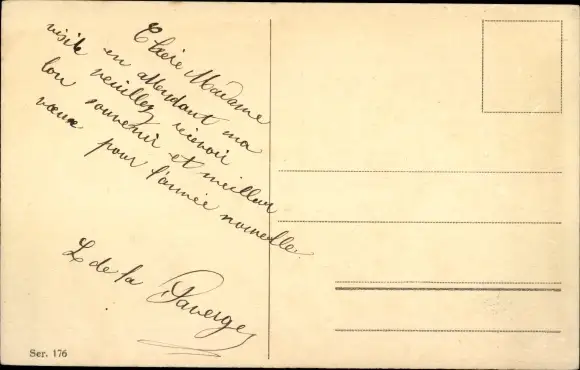 Chère Madame
visite en attendant ma
veuillez recevoir
bon souvenir et meilleur
vœux pour l'année nouvelle
L de la
Ser. 176